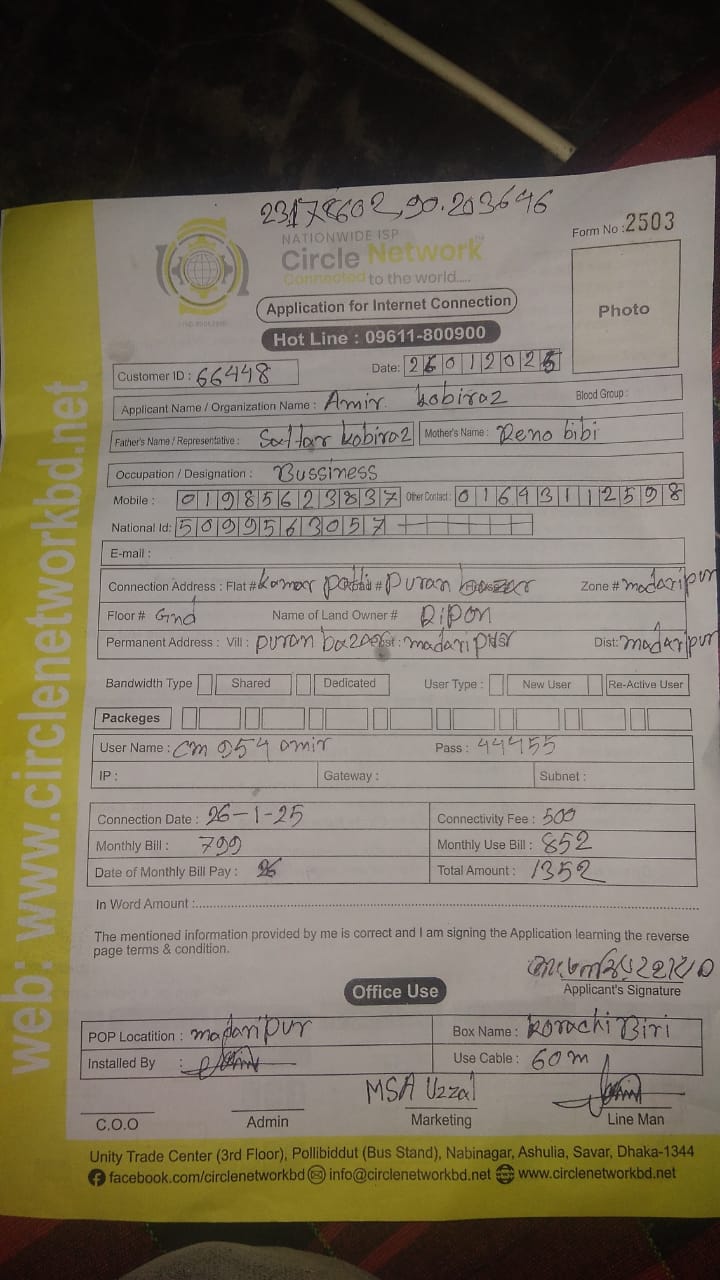 23178602,90.203646
NATIONWIDE ISP
Form No : 2503
Circle Network
Connected to the world.....
Application for Internet Connection
Photo
Hot Line : 09611-800900
Customer ID : 66448 Date: 26012025
Applicant Name / Organization Name : Amir kobiraz Blood Group :
Father's Name / Representative : Sattar kobiraz Mother's Name : Reno bibi
Occupation / Designation : Bussiness
Mobile : 01985623837 Other Contact : 01643112598
National Id: 5099563057
E-mail :
Connection Address : Flat # kamar patti # puran bazar Zone # madaripur
Floor # Gnd Name of Land Owner # Ripon
Permanent Address : Vill : puran bazar Post : madaripur Dist: madaripur
Bandwidth Type Shared Dedicated User Type : New User Re-Active User
Packeges
User Name : cm 954 amir Pass : 44455
IP : Gateway : Subnet :
Connection Date : 26-1-25 Connectivity Fee : 500
Monthly Bill : 799 Monthly Use Bill : 852
Date of Monthly Bill Pay : 26 Total Amount : 1352
In Word Amount :
The mentioned information provided by me is correct and I am signing the Application learning the reverse
page terms & condition.
Applicant's Signature
Office Use
POP Locatition : madaripur Box Name : korachi Biri
Installed By : Use Cable : 60m
MSA Uzzal
C.O.O Admin Marketing Line Man
Unity Trade Center (3rd Floor), Pollibiddut (Bus Stand), Nabinagar, Ashulia, Savar, Dhaka-1344
facebook.com/circlenetworkbd info@circlenetworkbd.net www.circlenetworkbd.net
web: www.circlenetworkbd.net